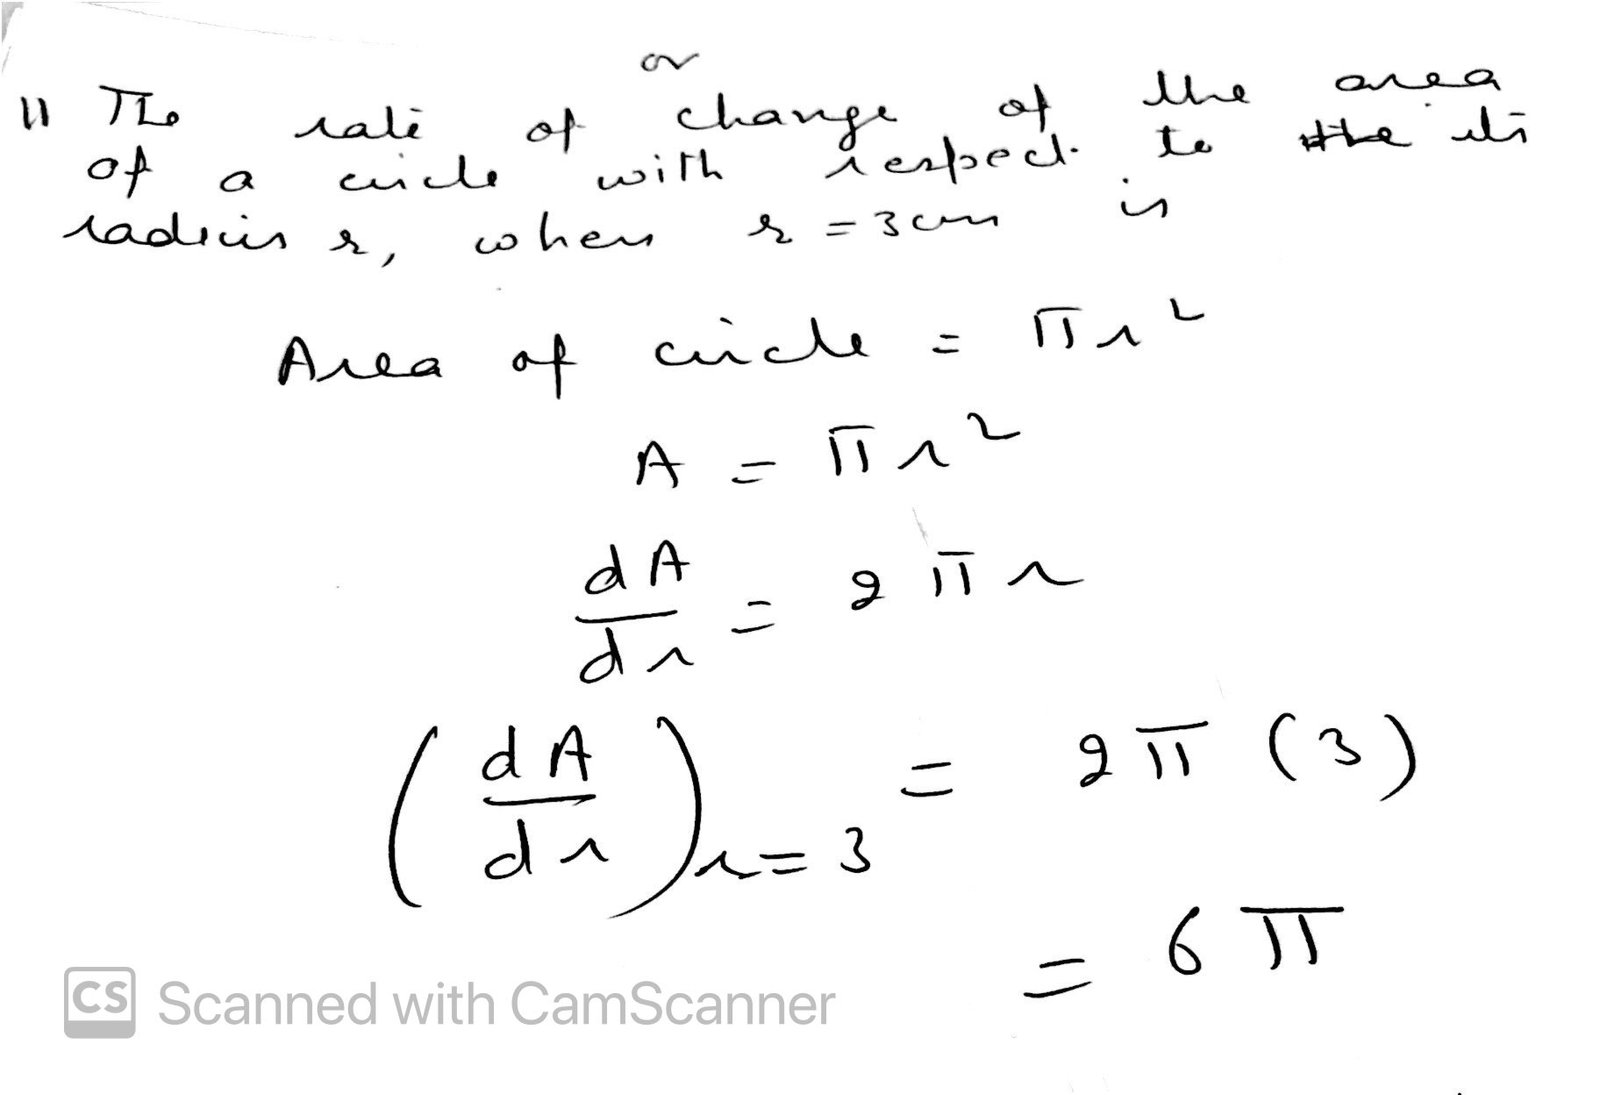 or
11 The rate of change of the area
of a circle with respect to the its
radius r, when r = 3cm is
Area of circle = πr²
A = πr²
dA/dr = 2πr
(dA/dr)r=3 = 2π(3)
= 6π
CS Scanned with CamScanner